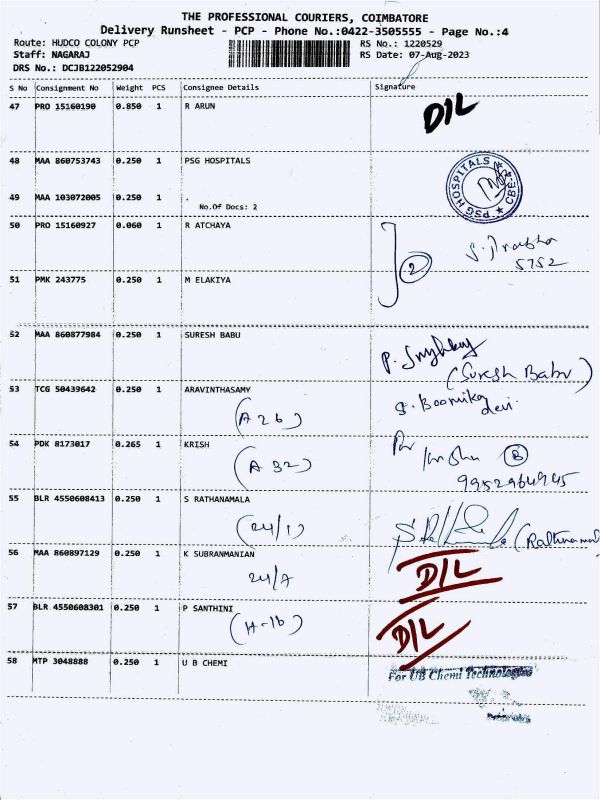 THE PROFESSIONAL COURIERS, COIMBATORE
Delivery Runsheet - PCP - Phone No.:0422-3505555 - Page No.:4
Route: HUDCO COLONY PCP RS No.: 1220529
Staff: NAGARAJ RS Date: 07-Aug-2023
DRS No.: DCJB122052904
S No Consignment No Weight PCS Consignee Details Signature
47 PRO 15160190 0.850 1 R ARUN D/L
48 MAA 860753743 0.250 1 PSG HOSPITALS PSG HOSPITALS CBE-4
49 MAA 103072005 0.250 1 .
No.Of Docs: 2
50 PRO 15160927 0.060 1 R ATCHAYA
2 5752
51 PMK 243775 0.250 1 M ELAKIYA
52 MAA 860877984 0.250 1 SURESH BABU P.
(Suresh Babu)
53 TCG 50439642 0.250 1 ARAVINTHASAMY S. Boomika devi
(A 26)
54 PDK 8173017 0.265 1 KRISH
(A 32) B
9952964945
55 BLR 4550608413 0.250 1 S RATHANAMALA
(24/1)
56 MAA 860897129 0.250 1 K SUBRANMANIAN D/L
24/7
57 BLR 4550608301 0.250 1 P SANTHINI D/L
(H-16)
58 MTP 3048888 0.250 1 U B CHEMI
For UB Chemi Technologies